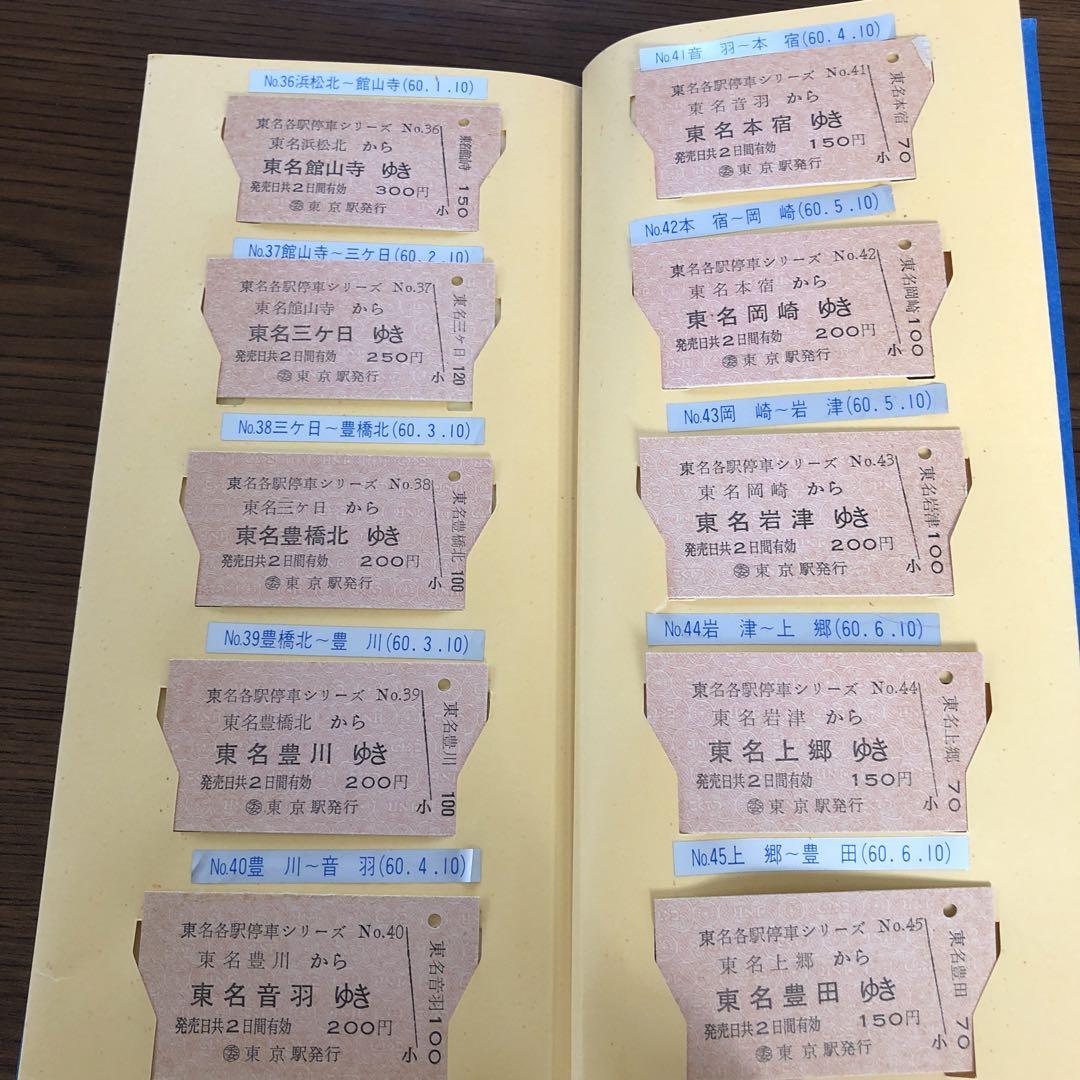 No.36浜松北～館山寺(60.1.10)
東名各駅停車シリーズ No.36
東名浜松北 から
東名館山寺 ゆき
発売日共2日間有効 300円
委東京駅発行
小
東名館山寺 150
No.37館山寺～三ケ日(60.2.10)
東名各駅停車シリーズ No.37
東名館山寺 から
東名三ケ日 ゆき
発売日共2日間有効 250円
委東京駅発行
小
東名三ケ日 120
No.38三ケ日～豊橋北(60.3.10)
東名各駅停車シリーズ No.38
東名三ケ日 から
東名豊橋北 ゆき
発売日共2日間有効 200円
委東京駅発行
小
東名豊橋北 100
No.39豊橋北～豊 川(60.3.10)
東名各駅停車シリーズ No.39
東名豊橋北 から
東名豊川 ゆき
発売日共2日間有効 200円
委東京駅発行
小
東名豊川 100
No.40豊 川～音 羽(60.4.10)
東名各駅停車シリーズ No.40
東名豊川 から
東名音羽 ゆき
発売日共2日間有効 200円
委東京駅発行
小
東名音羽 100
No.41音 羽～本 宿(60.4.10)
東名各駅停車シリーズ No.41
東名音羽 から
東名本宿 ゆき
発売日共2日間有効 150円
委東京駅発行
小
東名本宿 70
No.42本 宿～岡 崎(60.5.10)
東名各駅停車シリーズ No.42
東名本宿 から
東名岡崎 ゆき
発売日共2日間有効 200円
委東京駅発行
小
東名岡崎 100
No.43岡 崎～岩 津(60.5.10)
東名各駅停車シリーズ No.43
東名岡崎 から
東名岩津 ゆき
発売日共2日間有効 200円
委東京駅発行
小
東名岩津 100
No.44岩 津～上 郷(60.6.10)
東名各駅停車シリーズ No.44
東名岩津 から
東名上郷 ゆき
発売日共2日間有効 150円
委東京駅発行
小
東名上郷 70
No.45上 郷～豊 田(60.6.10)
東名各駅停車シリーズ No.45
東名上郷 から
東名豊田 ゆき
発売日共2日間有効 150円
委東京駅発行
小
東名豊田 70